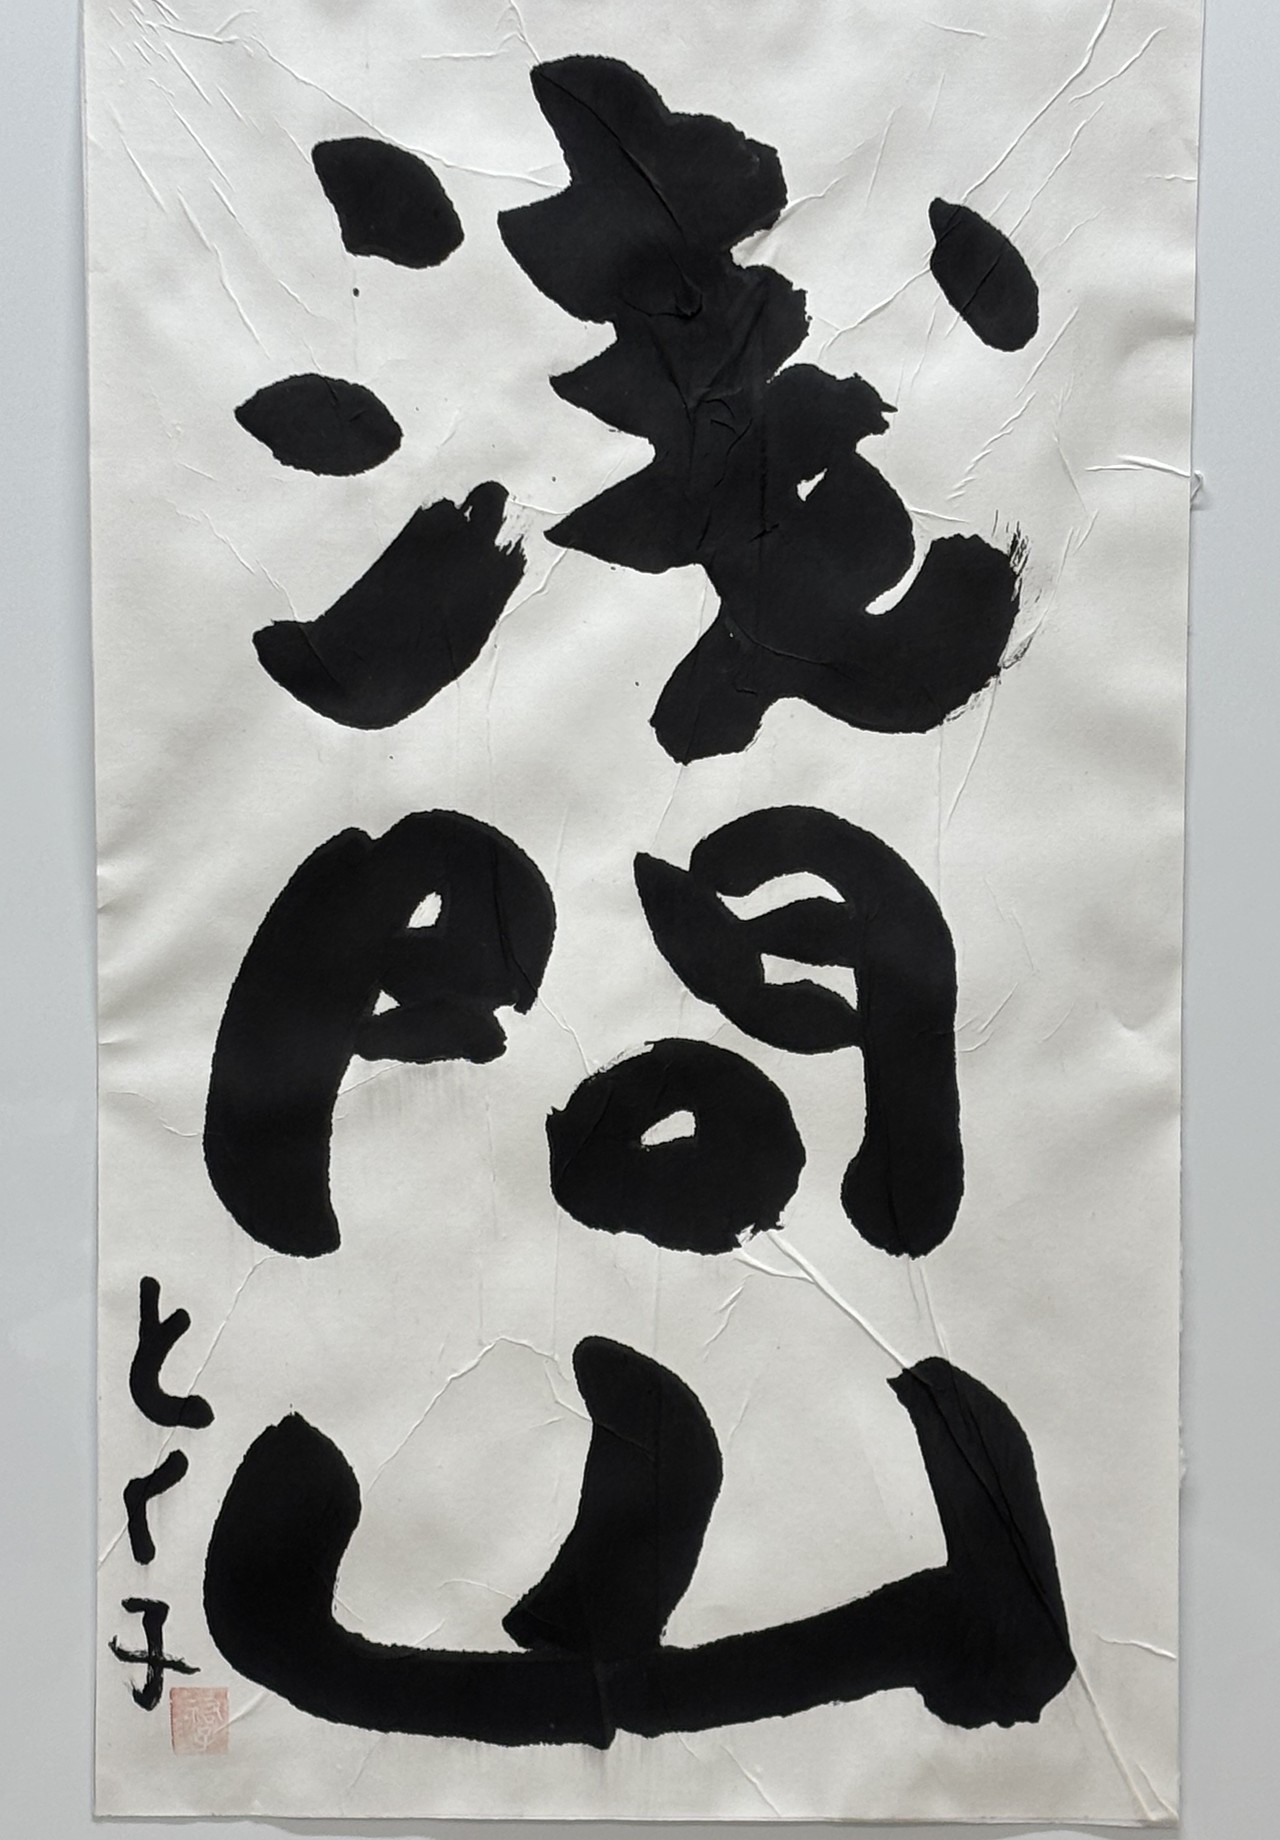 浅間山
とく子